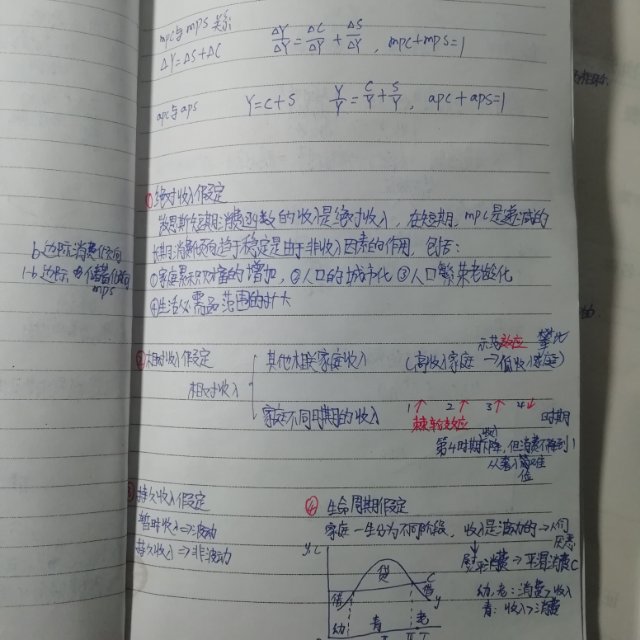 mpc与mps 关系
ΔY=ΔS+ΔC
ΔY/ΔY = ΔC/ΔY + ΔS/ΔY , mpc+mps=1
apc与aps
Y=C+S Y/Y = C/Y + S/Y , apc+aps=1
b 边际消费倾向
1-b 边际 储蓄倾向
mps
① 绝对收入假定
凯恩斯短期消费函数的收入是绝对收入，在短期，mpc是递减的
长期消费倾向趋于稳定是由于非收入因素的作用，包括：
①家庭累积财富的增加，②人口的城市化 ③人口繁荣老龄化
④生活必需品范围的扩大
② 相对收入假定
相对收入
其他相关家庭收入
示范效应 攀比
(高收入家庭 → 低收入家庭)
家庭不同时期的收入
1↑ 2↑ 3↑ 4↓ 时期
棘轮效应
收入
第4时期下降，但消费不降到1
③ 持久收入假定
暂时收入→波动
持久收入→非波动
④ 生命周期假定
家庭一生分为不同阶段，收入是波动的→人们
消费→平滑消费C
幼，老：消费>收入
青：收入>消费
y,c
贷
借
借
C
y
幼 青 老